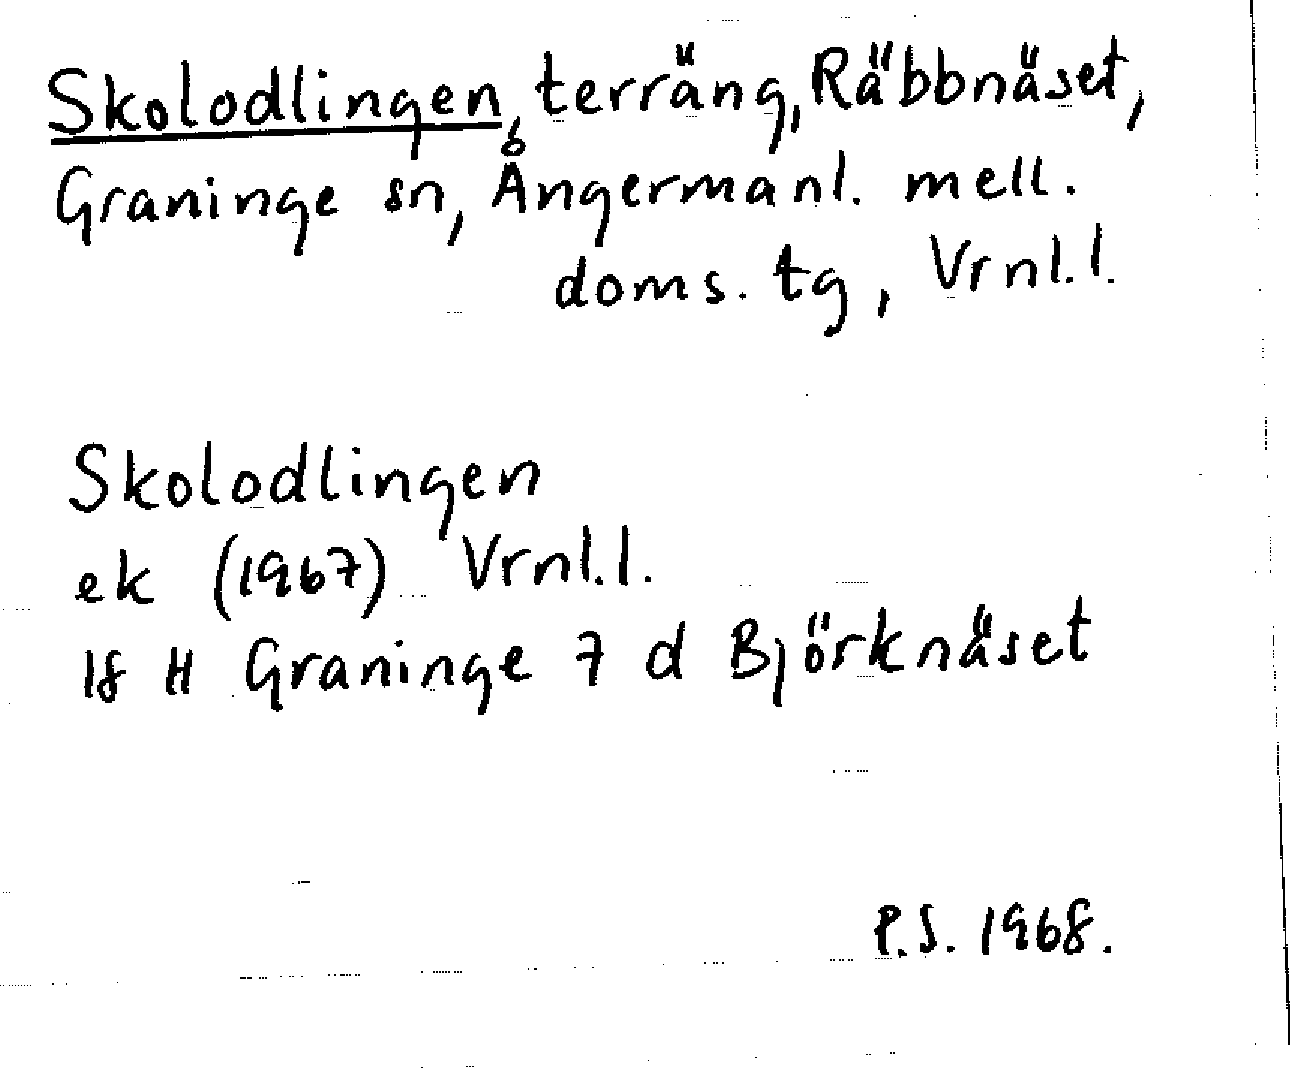 Skolodlingen, terräng, Räbbnäset,
Graninge sn, Ångermanl. mell.
doms. tg, Vrnl. l.
Skolodlingen
ek (1967) Vrnl. l.
18 H Graninge 7 d Björknäset
P.S. 1968.